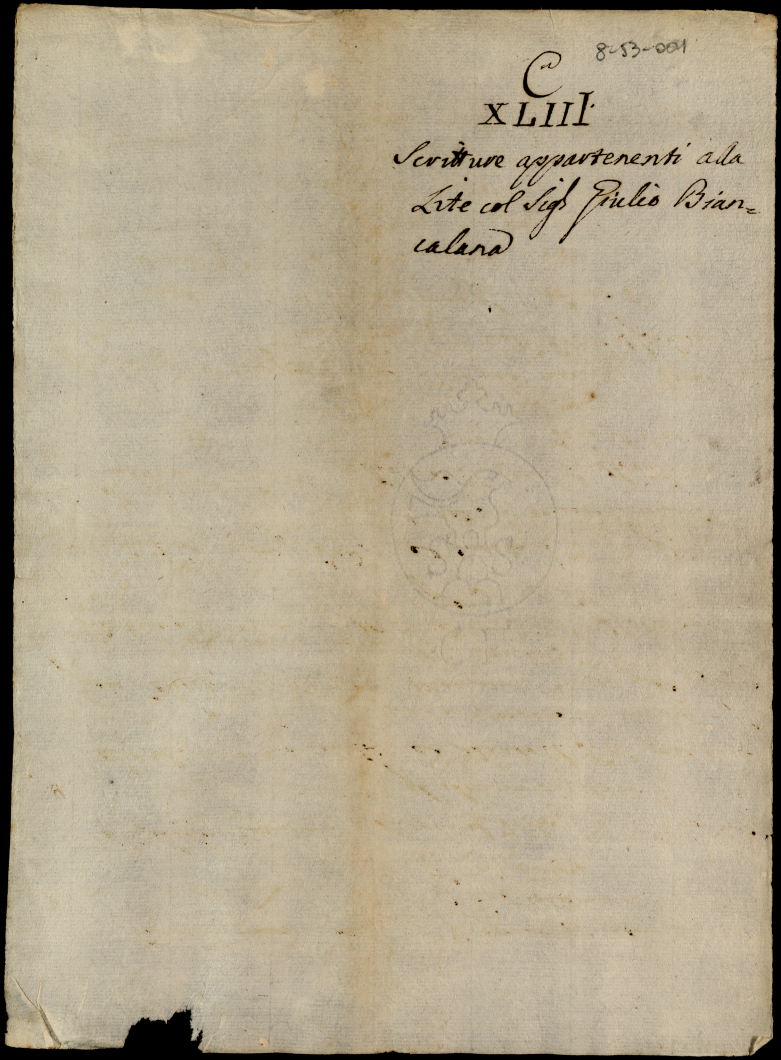 8-53-001
C.a
XLIII.
Scritture appartenenti alla
Lite col Sig.r Giulio Bian=
calana